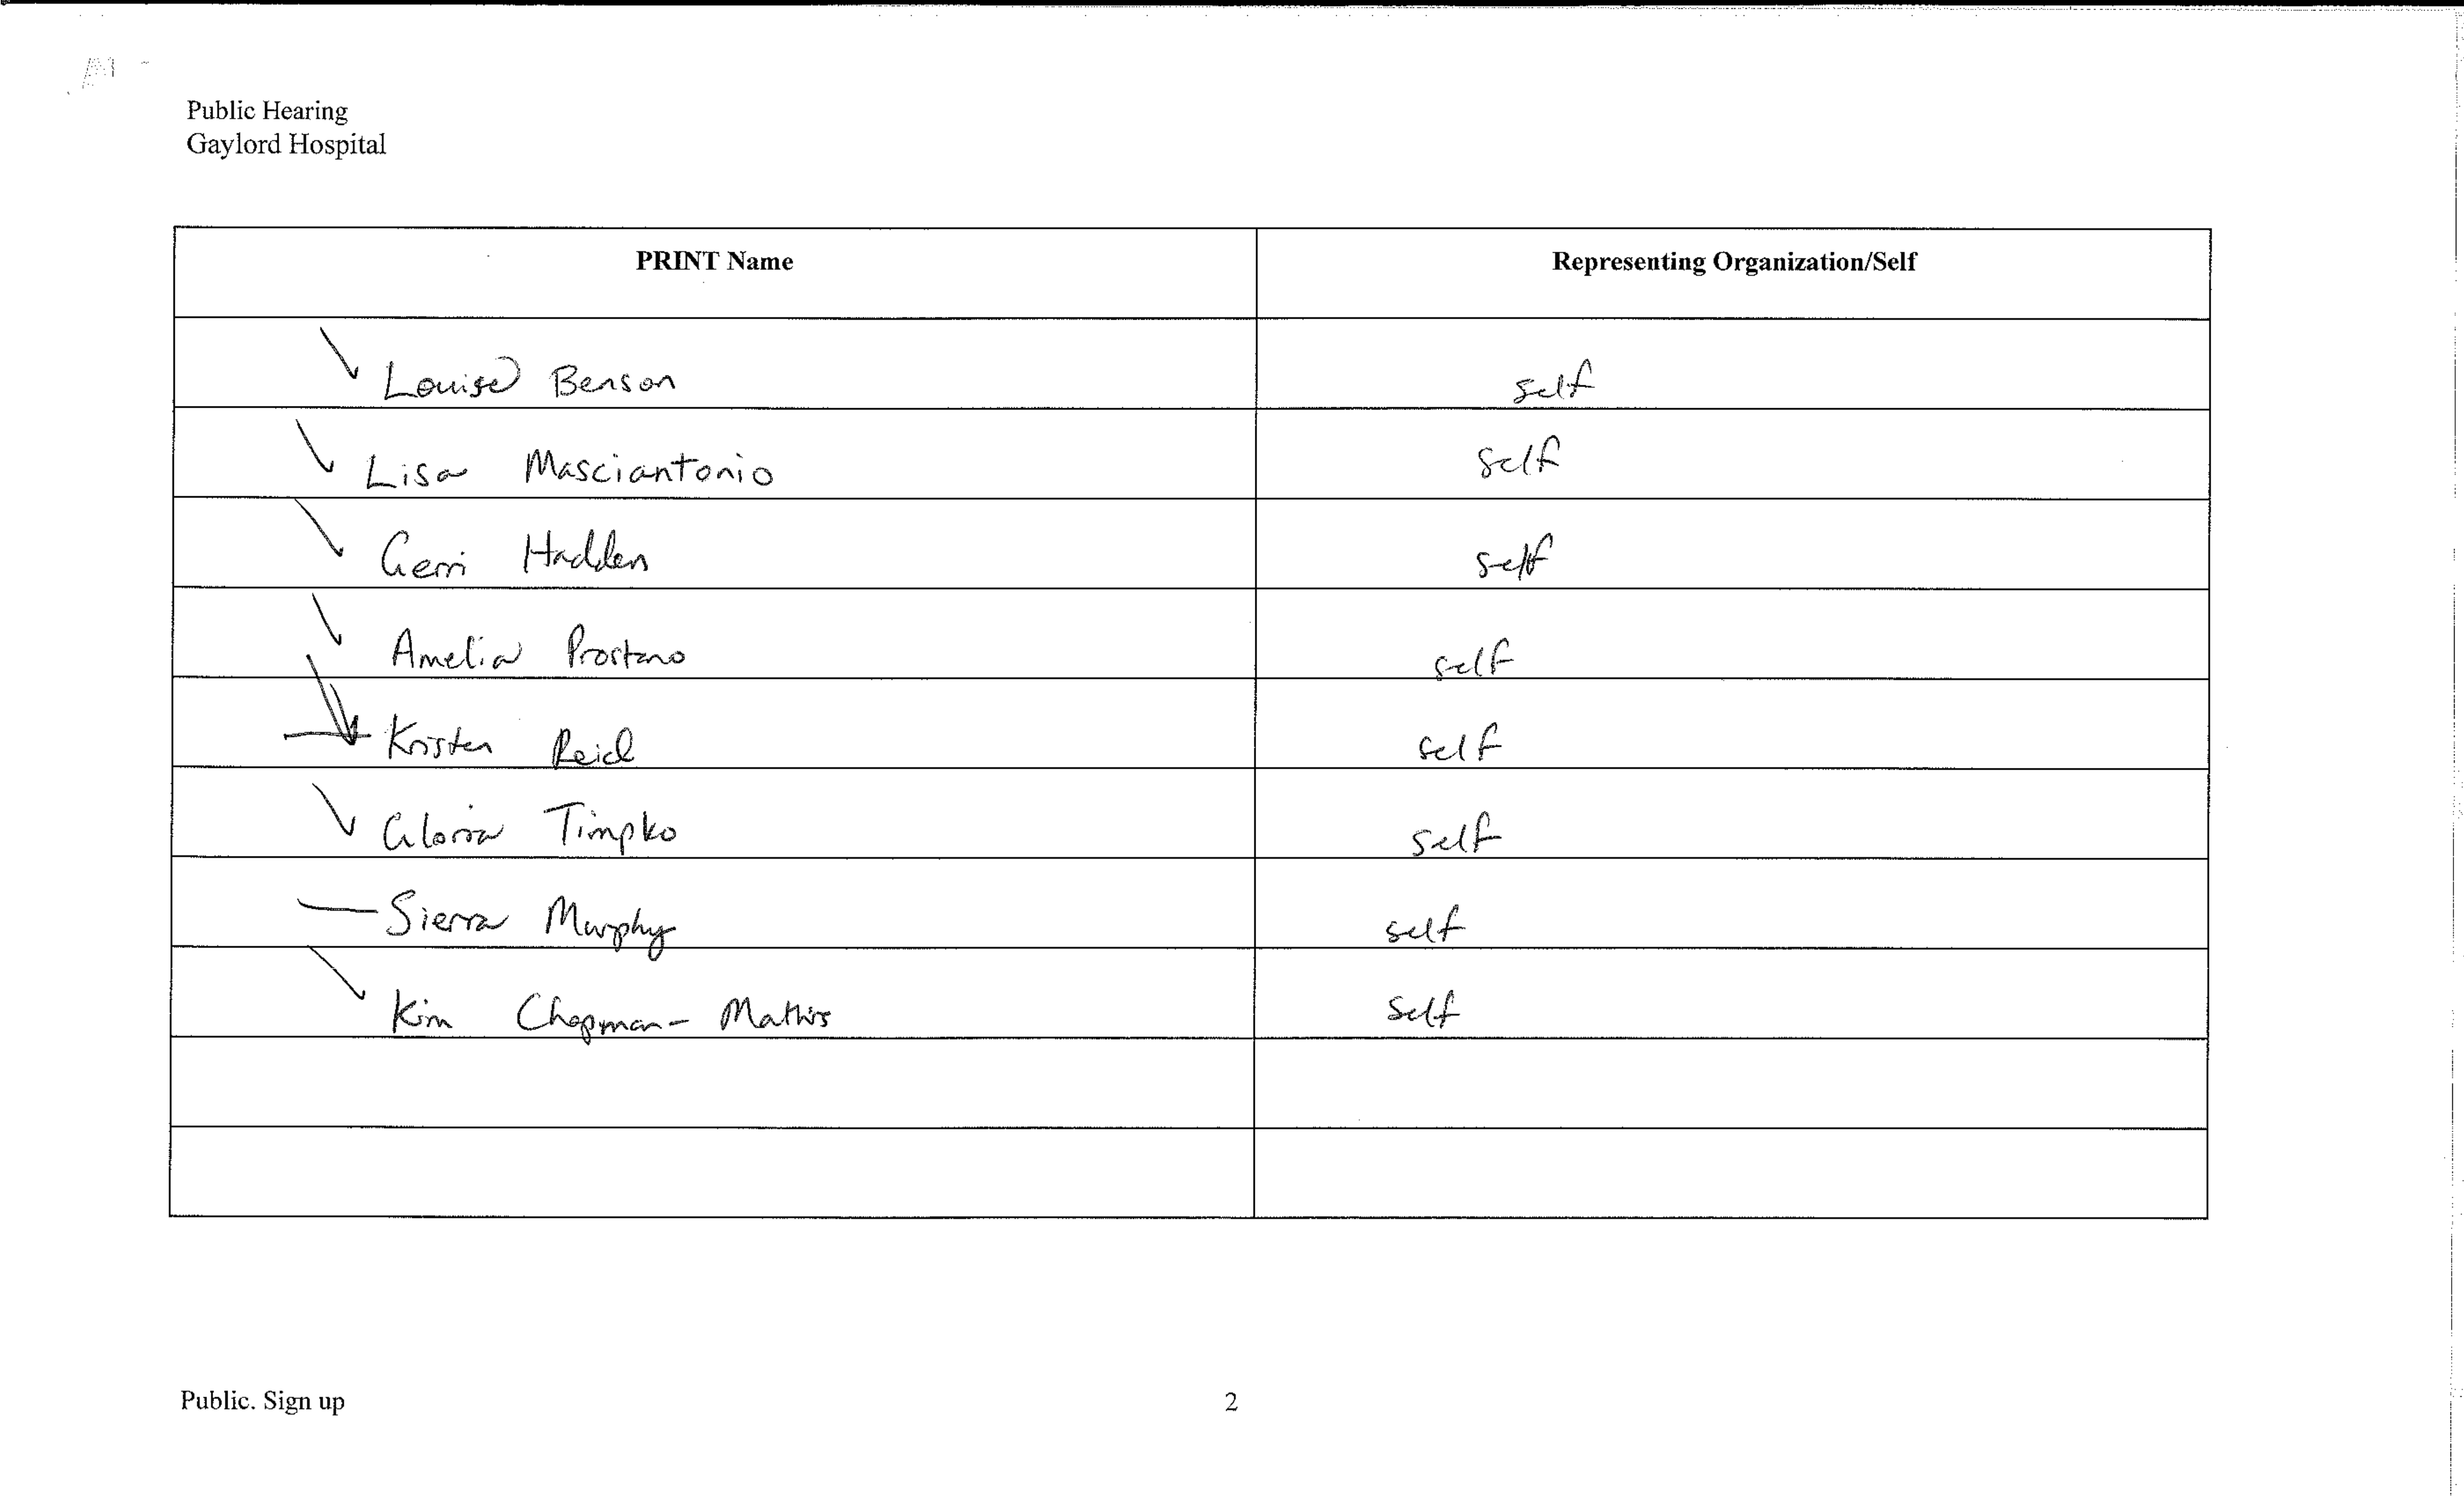 Public Hearing
Gaylord Hospital
PRINT Name Representing Organization/Self
Louise Benson self
Lisa Masciantonio self
Gerri Hadden self
Amelia Prostano self
Kristen Reid self
Gloria Timpko self
Sierra Murphy self
Kim Chapman-Mathis self
Public. Sign up 2